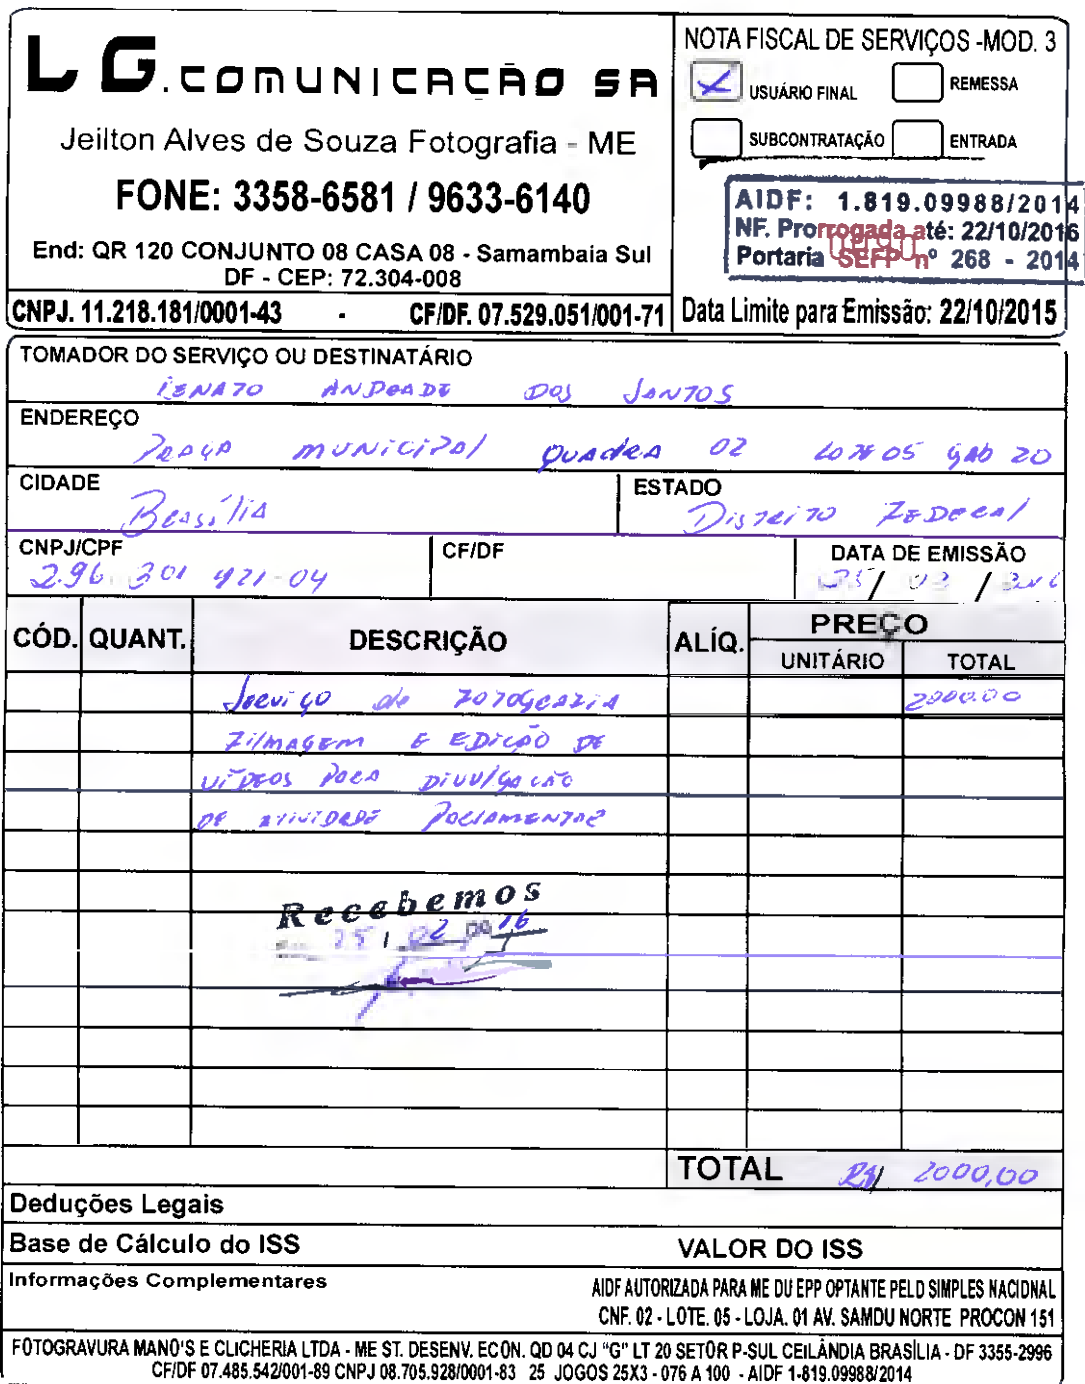 LG.COMUNICAÇÃO SA
Jeilton Alves de Souza Fotografia - ME
FONE: 3358-6581 / 9633-6140
End: QR 120 CONJUNTO 08 CASA 08 - Samambaia Sul
DF - CEP: 72.304-008
CNPJ. 11.218.181/0001-43 - CF/DF. 07.529.051/001-71
NOTA FISCAL DE SERVIÇOS -MOD. 3
USUÁRIO FINAL REMESSA
SUBCONTRATAÇÃO ENTRADA
AIDF: 1.819.09988/2014
NF. Prorrogada até: 22/10/2016
Portaria SEFP nº 268 - 2014
Data Limite para Emissão: 22/10/2015
TOMADOR DO SERVIÇO OU DESTINATÁRIO
ANDRADE DOS SANTOS
ENDEREÇO
PRAÇA MUNICIPAL QUADRA 02 LOTE 05 GAB 20
CIDADE
Brasília
ESTADO
DISTRITO FEDERAL
CNPJ/CPF
296 301 421-04
CF/DF
DATA DE EMISSÃO
CÓD. QUANT. DESCRIÇÃO ALÍQ. PREÇO
UNITÁRIO TOTAL
Serviço de FOTOGRAFIA 2000.00
FILMAGEM E EDIÇÃO DE
VÍDEOS PARA DIVULGAÇÃO
DE ATIVIDADE PARLAMENTAR
Recebemos
25 / 02 16
TOTAL R$ 2000,00
Deduções Legais
Base de Cálculo do ISS VALOR DO ISS
Informações Complementares
AIDF AUTORIZADA PARA ME DU EPP OPTANTE PELD SIMPLES NACIDNAL
CNF. 02 - LOTE. 05 - LOJA. 01 AV. SAMDU NORTE PROCON 151
FOTOGRAVURA MANO'S E CLICHERIA LTDA - ME ST. DESENV. ECON. QD 04 CJ "G" LT 20 SETOR P-SUL CEILÂNDIA BRASÍLIA - DF 3355-2996
CF/DF 07.485.542/001-89 CNPJ 08.705.928/0001-83 25 JOGOS 25X3 - 076 A 100 - AIDF 1-819.09988/2014